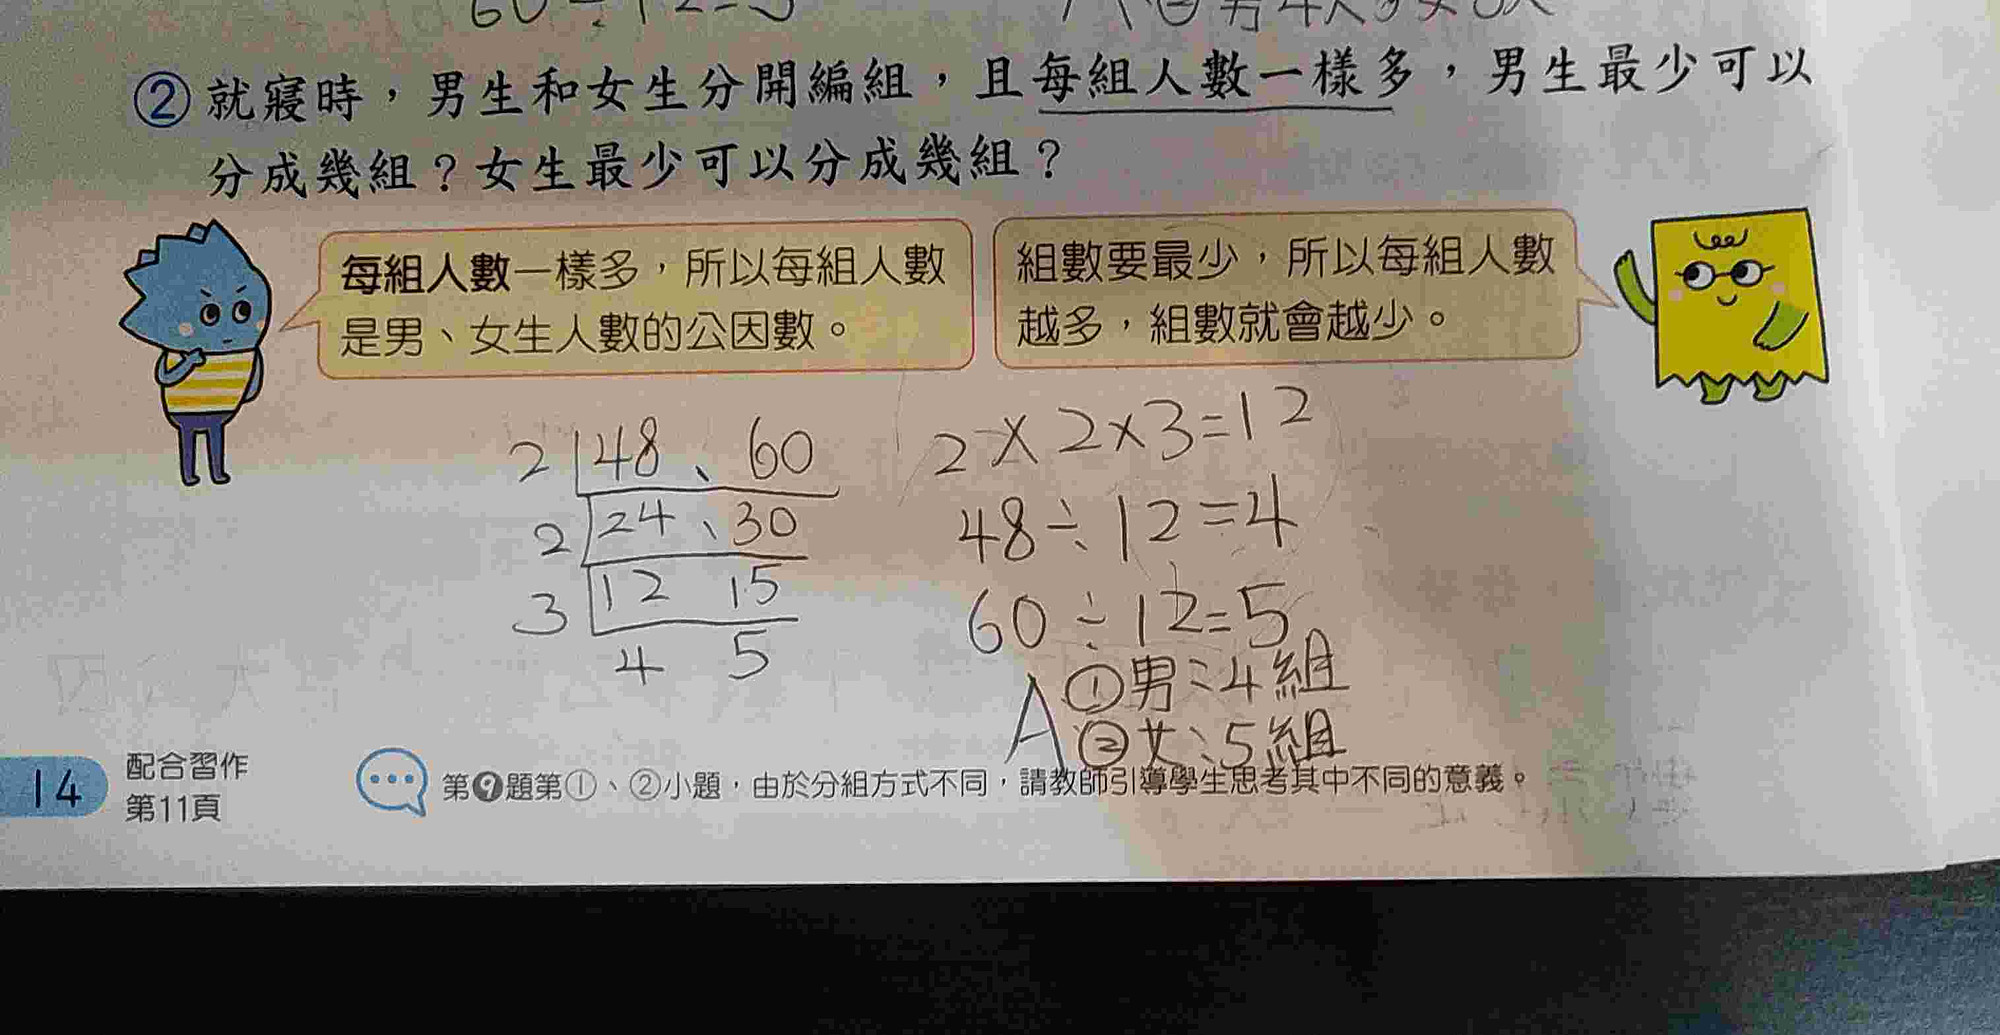 60÷12=5
②就寢時，男生和女生分開編組，且每組人數一樣多，男生最少可以
分成幾組？女生最少可以分成幾組？
每組人數一樣多，所以每組人數
是男、女生人數的公因數。
組數要最少，所以每組人數
越多，組數就會越少。
2 48、60
2 24、30
3 12 15
4 5
2×2×3=12
48÷12=4
60÷12=5
A ①男:4組
②女:5組
14
配合習作
第11頁
第❾題第①、②小題，由於分組方式不同，請教師引導學生思考其中不同的意義。